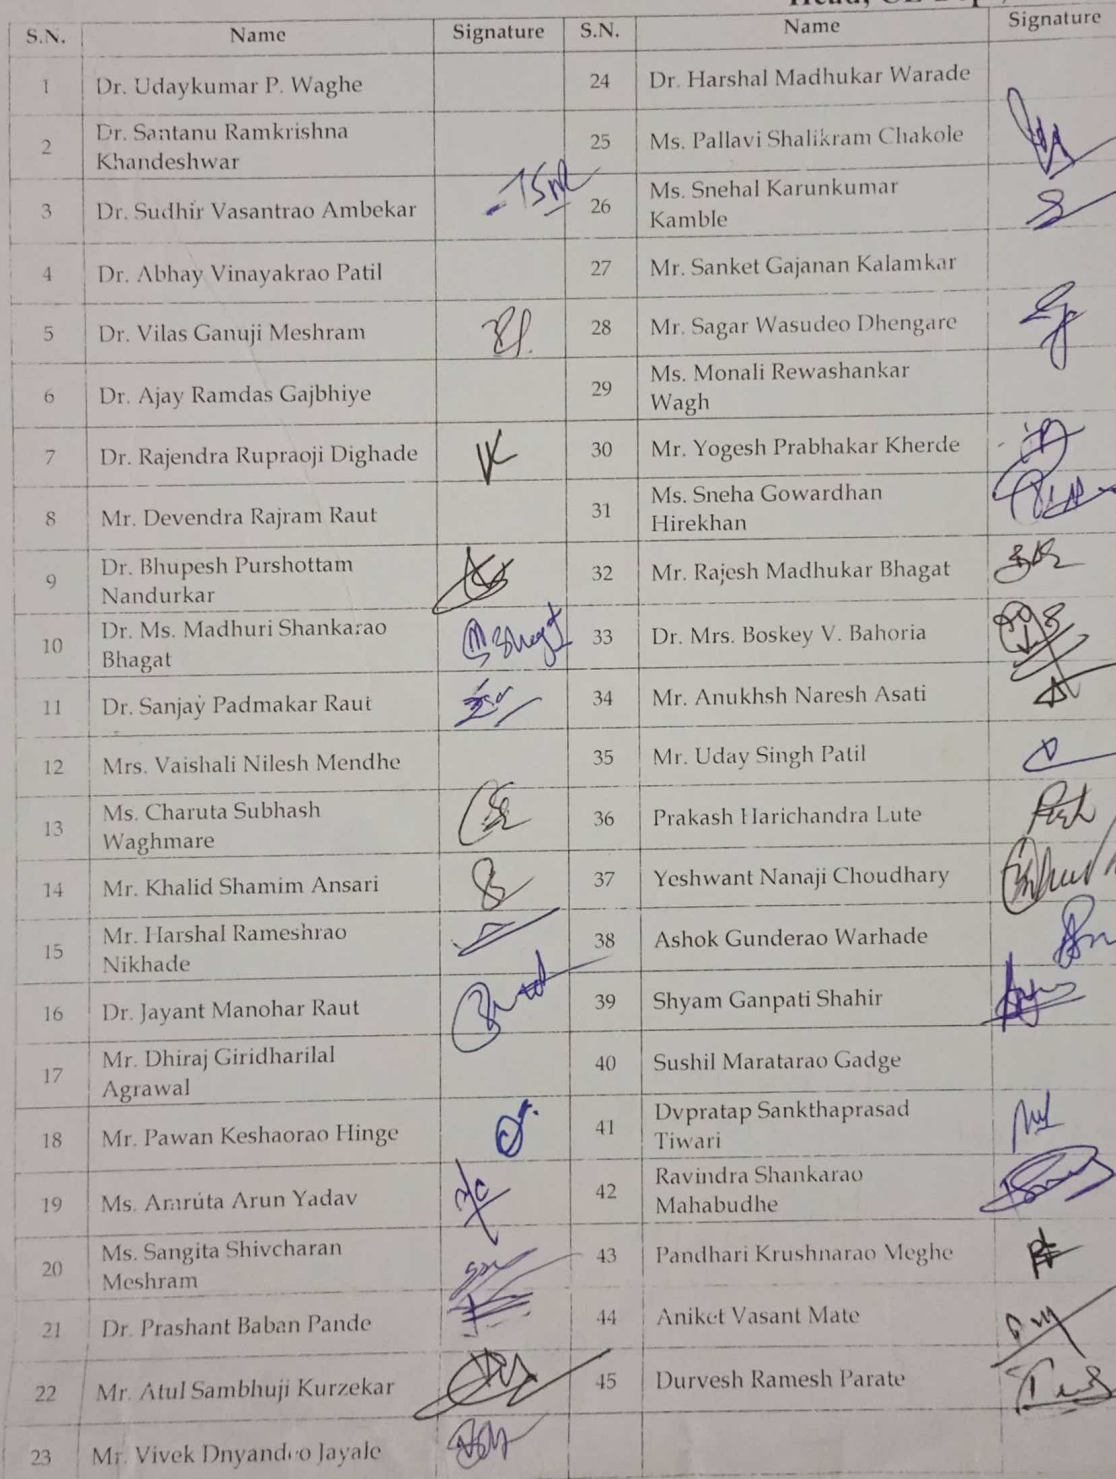 Head, CE Dept,
S.N. Name Signature S.N. Name Signature
1 Dr. Udaykumar P. Waghe 24 Dr. Harshal Madhukar Warade
2 Dr. Santanu Ramkrishna Khandeshwar 25 Ms. Pallavi Shalikram Chakole
3 Dr. Sudhir Vasantrao Ambekar 26 Ms. Snehal Karunkumar Kamble
4 Dr. Abhay Vinayakrao Patil 27 Mr. Sanket Gajanan Kalamkar
5 Dr. Vilas Ganuji Meshram 28 Mr. Sagar Wasudeo Dhengare
6 Dr. Ajay Ramdas Gajbhiye 29 Ms. Monali Rewashankar Wagh
7 Dr. Rajendra Rupraoji Dighade 30 Mr. Yogesh Prabhakar Kherde
8 Mr. Devendra Rajram Raut 31 Ms. Sneha Gowardhan Hirekhan
9 Dr. Bhupesh Purshottam Nandurkar 32 Mr. Rajesh Madhukar Bhagat
10 Dr. Ms. Madhuri Shankarao Bhagat MSBhagat 33 Dr. Mrs. Boskey V. Bahoria
11 Dr. Sanjay Padmakar Raut 34 Mr. Anukhsh Naresh Asati
12 Mrs. Vaishali Nilesh Mendhe 35 Mr. Uday Singh Patil
13 Ms. Charuta Subhash Waghmare 36 Prakash Harichandra Lute
14 Mr. Khalid Shamim Ansari 37 Yeshwant Nanaji Choudhary
15 Mr. Harshal Rameshrao Nikhade 38 Ashok Gunderao Warhade
16 Dr. Jayant Manohar Raut 39 Shyam Ganpati Shahir
17 Mr. Dhiraj Giridharilal Agrawal 40 Sushil Maratarao Gadge
18 Mr. Pawan Keshaorao Hinge 41 Dvpratap Sankthaprasad Tiwari
19 Ms. Amruta Arun Yadav 42 Ravindra Shankarao Mahabudhe
20 Ms. Sangita Shivcharan Meshram 43 Pandhari Krushnarao Meghe
21 Dr. Prashant Baban Pande 44 Aniket Vasant Mate
22 Mr. Atul Sambhuji Kurzekar 45 Durvesh Ramesh Parate
23 Mr. Vivek Dnyandeo Jayale